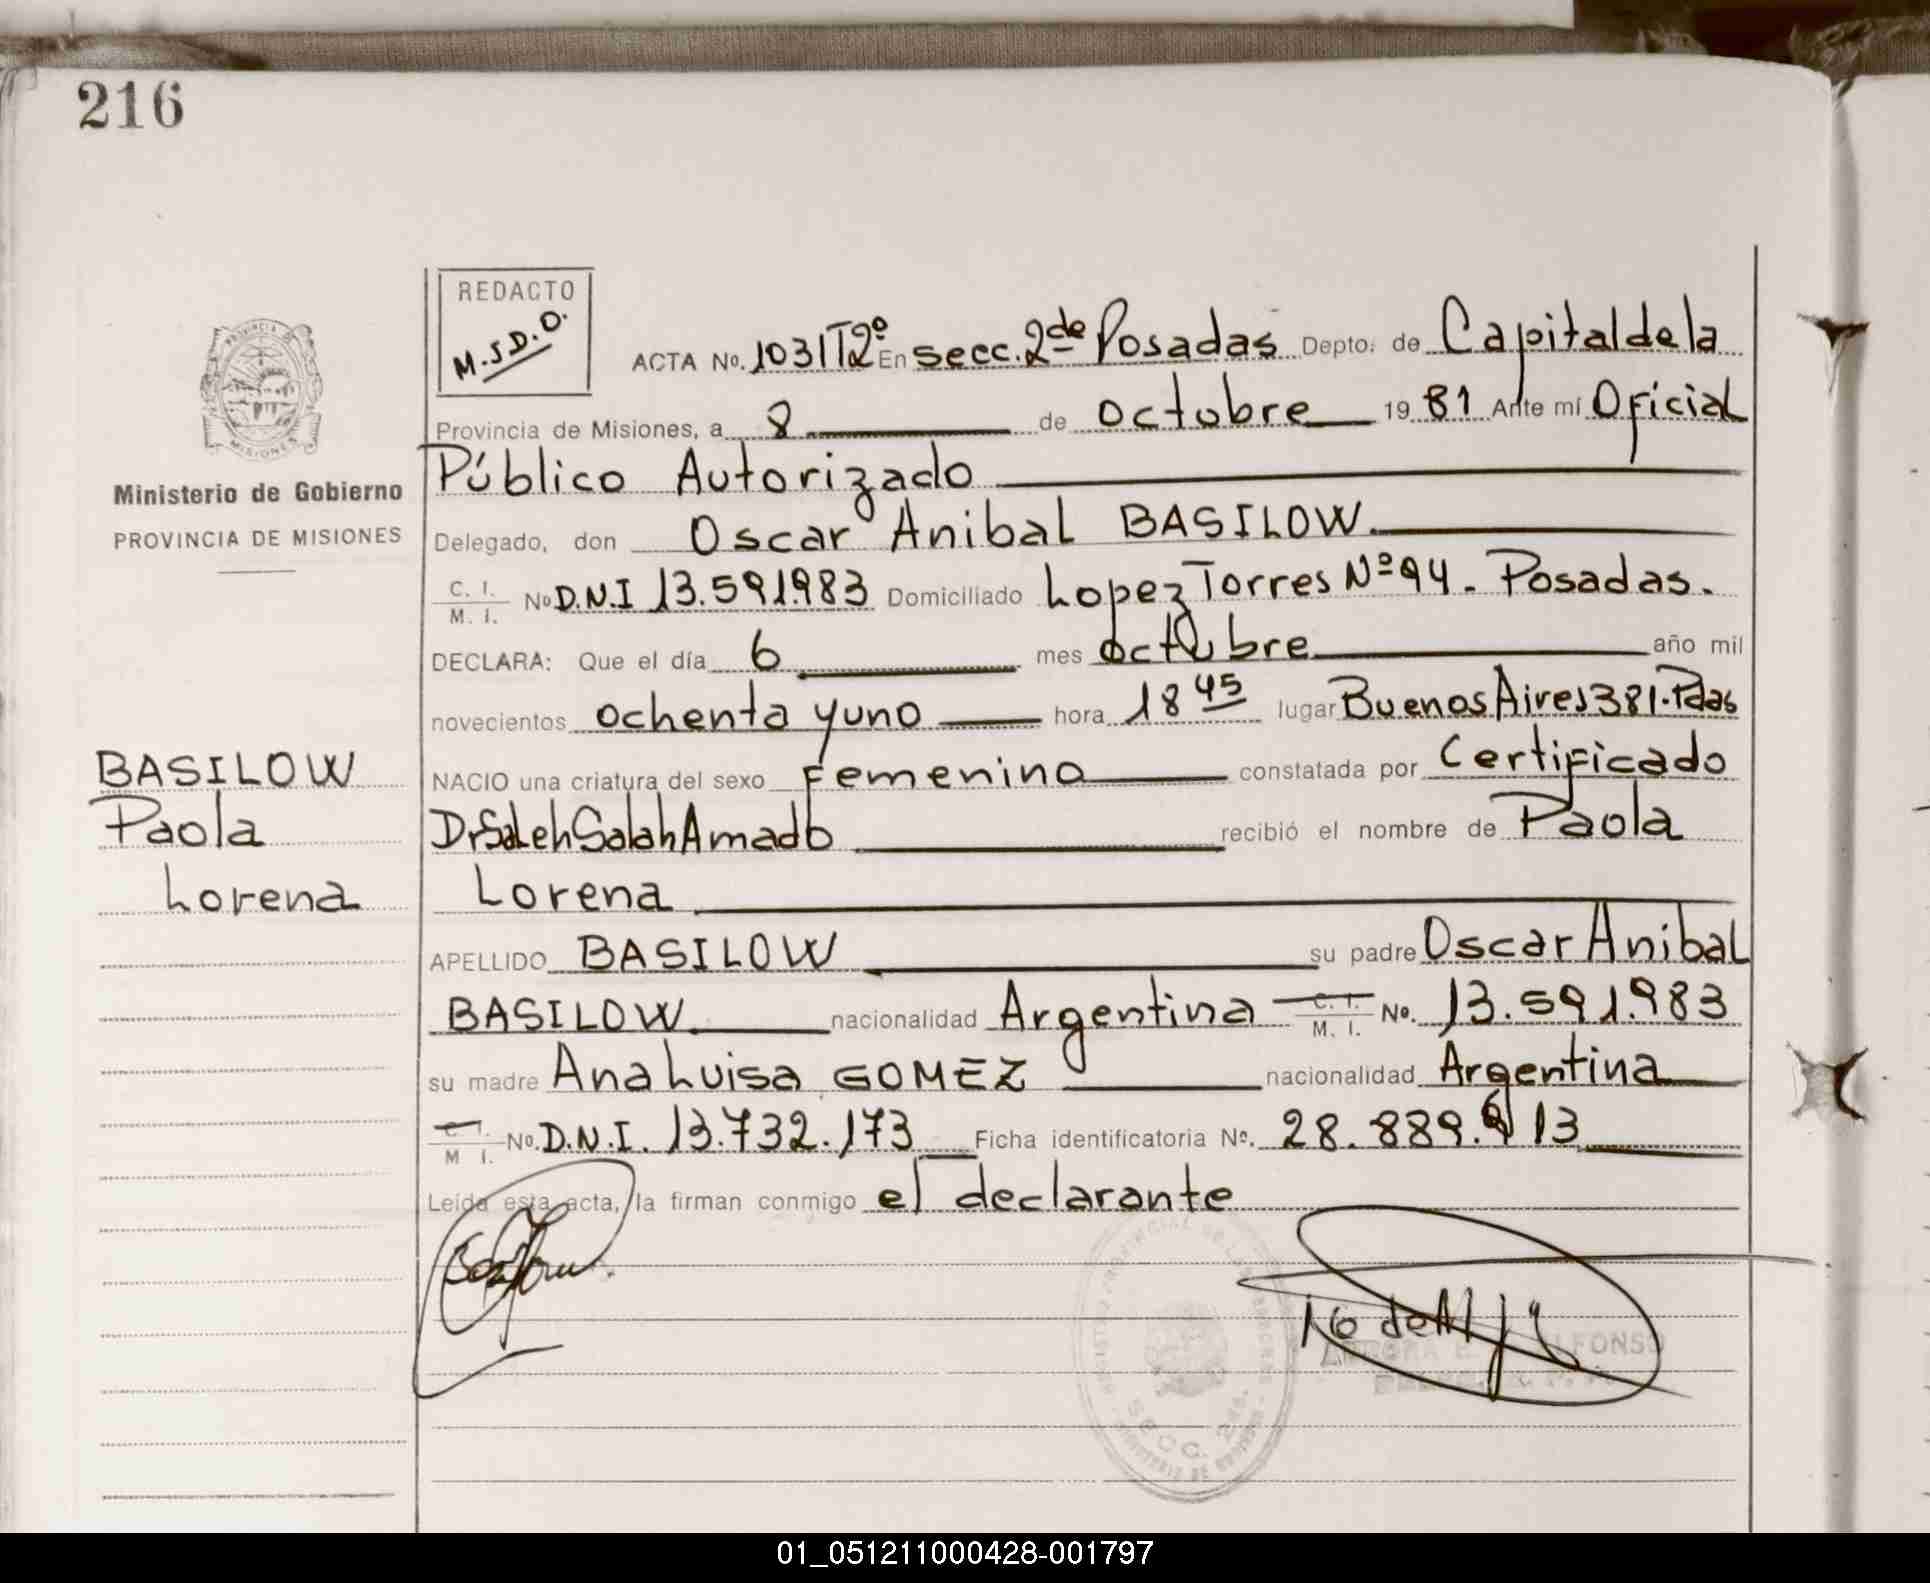 216
REDACTO
M.S.D.O.
ACTA No. 1031T2º En secc. 2de Posadas Depto. de Capital de la
Provincia de Misiones, a 8 de octubre 19 81 Ante mí Oficial
Público Autorizado
Delegado, don Oscar Anibal BASILOW.
C. I. / M. I. No D.N.I 13.591.983 Domiciliado Lopez Torres Nº 94. Posadas.
DECLARA: Que el día 6 mes octubre año mil
novecientos ochenta y uno hora 18 45 lugar Buenos Aires 381. Pdas
NACIO una criatura del sexo Femenino constatada por Certificado
Dr Saleh Salah Amado recibió el nombre de Paola
Lorena
APELLIDO BASILOW su padre Oscar Anibal
BASILOW nacionalidad Argentina C. I. / M. I. No. 13.591.983
su madre Ana Luisa GOMEZ nacionalidad Argentina
C. I. / M I. No. D.N.I. 13.732.173 Ficha identificatoria No. 28.889.613
Leída esta acta, la firman conmigo el declarante
PROVINCIA DE
MISIONES
Ministerio de Gobierno
PROVINCIA DE MISIONES
BASILOW
Paola
Lorena
SECC. 2da.
01_051211000428-001797